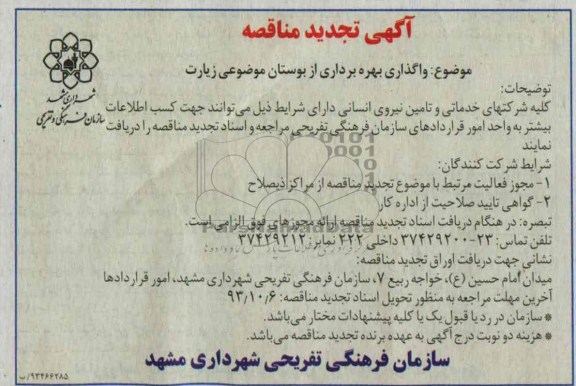 آگهی تجدید مناقصه
موضوع: واگذاری بهره برداری از بوستان موضوعی زیارت
شهرداری مشهد
سازمان فرهنگی و تفریحی
توضیحات:
کلیه شرکتهای خدماتی و تامین نیروی انسانی دارای شرایط ذیل می‌توانند جهت کسب اطلاعات
بیشتر به واحد امور قراردادهای سازمان فرهنگی تفریحی مراجعه و اسناد تجدید مناقصه را دریافت
نمایند
شرایط شرکت کنندگان:
۱- مجوز فعالیت مرتبط با موضوع تجدید مناقصه از مراکز ذیصلاح
۲- گواهی تایید صلاحیت از اداره کار
تبصره: در هنگام دریافت اسناد تجدید مناقصه ارائه مجوزهای فوق الزامی است.
تلفن تماس: ۲۳-۳۷۴۲۹۲۰۰ داخلی ۲۲۲ نمابر: ۳۷۴۲۹۲۱۲
نشانی جهت دریافت اوراق تجدید مناقصه:
میدان امام حسین (ع)، خواجه ربیع ۷، سازمان فرهنگی تفریحی شهرداری مشهد، امور قراردادها
آخرین مهلت مراجعه به منظور تحویل اسناد تجدید مناقصه: ۹۳،۱۰،۶
* سازمان در رد یا قبول یک یا کلیه پیشنهادات مختار می‌باشد.
* هزینه دو نوبت درج آگهی به عهده برنده تجدید مناقصه می‌باشد.
سازمان فرهنگی تفریحی شهرداری مشهد
۹۳۴۶۶۲۸۵/ب